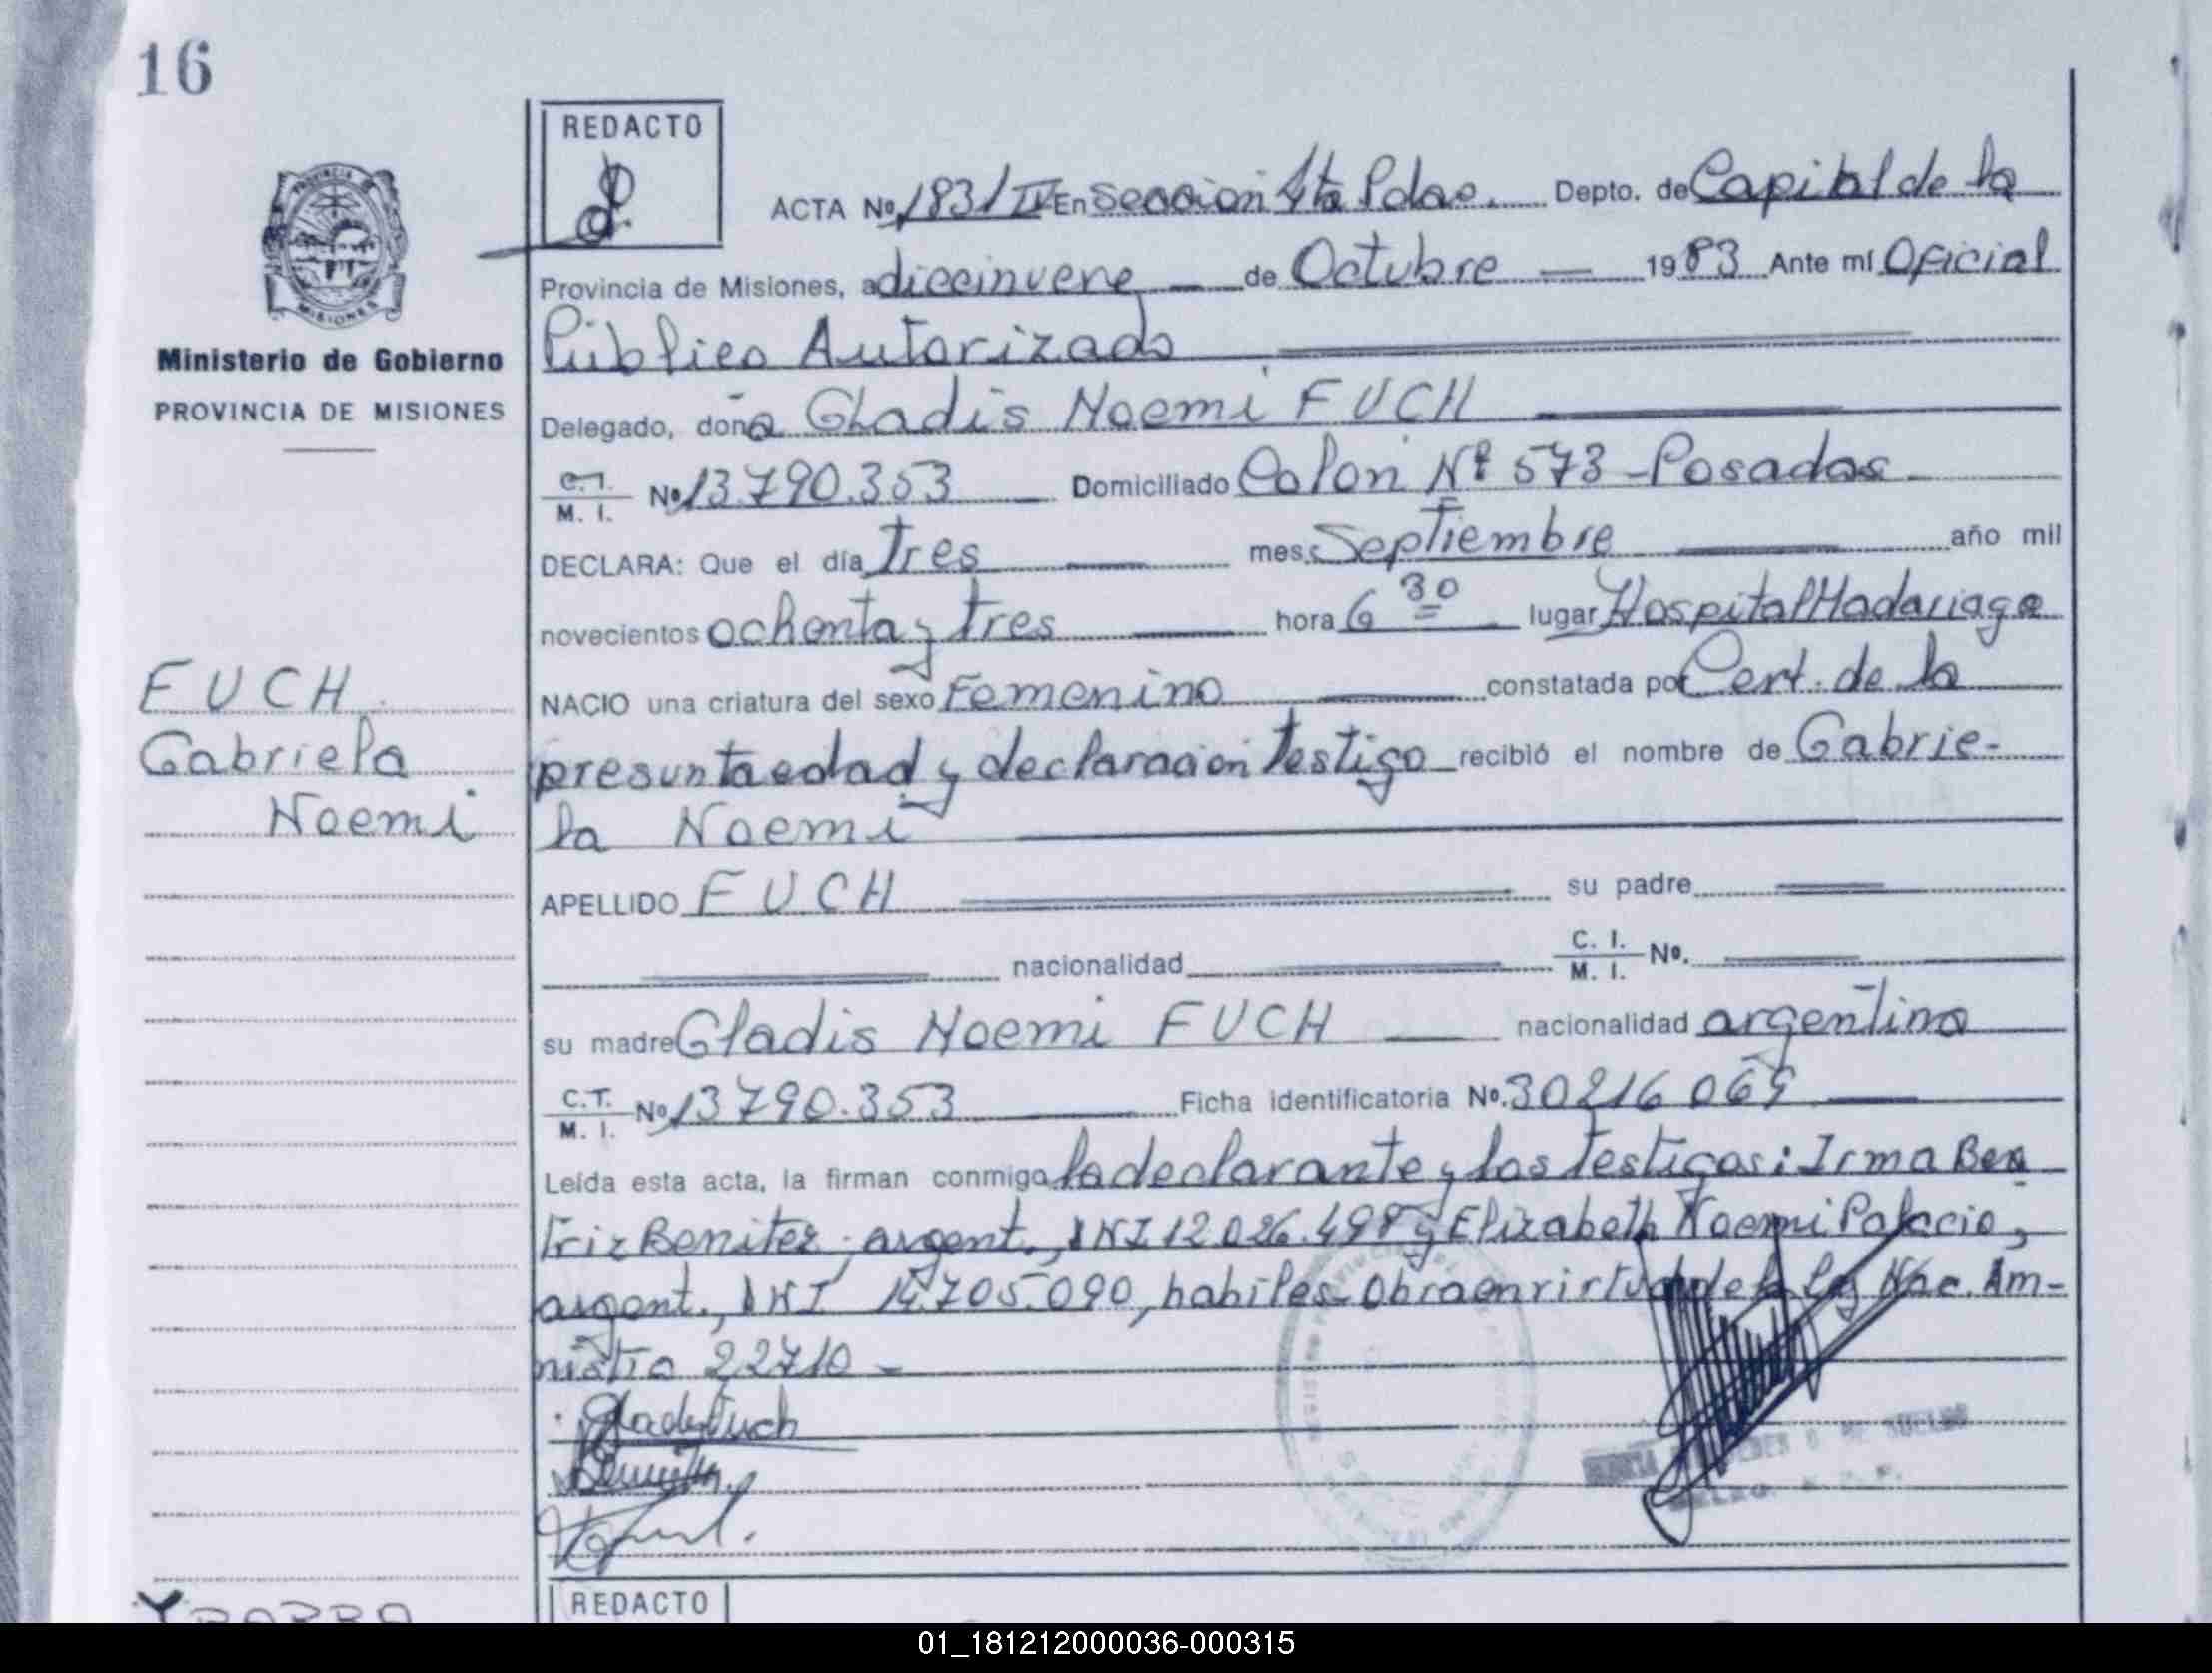 16
REDACTO
ACTA Nº 1831/IV En Sección 4ta Pdas. Depto. de Capital de la
Provincia de Misiones, a diecinueve de Octubre 1983 Ante mí Oficial
Público Autorizado
Ministerio de Gobierno
PROVINCIA DE MISIONES
Delegado, doña Gladis Noemi FUCH
C.I. M. I. Nº 13.790.353 Domiciliado Colon Nº 573 - Posadas
DECLARA: Que el día Tres mes Septiembre año mil
novecientos ochenta y tres hora 6 30 lugar Hospital Madariaga
NACIO una criatura del sexo Femenino constatada por Cert. de la
presunta edad y declaracion Testigo recibió el nombre de Gabrie-
la Noemi
FUCH
Gabriela
Noemi
APELLIDO FUCH su padre
nacionalidad C. I. M. I. Nº.
su madre Gladis Noemi FUCH nacionalidad argentina
C.I. M. I. Nº 13790.353 Ficha identificatoria Nº. 30216069
Leída esta acta, la firman conmigo la declarante y los Testigos: Irma Bea
Triz Benitez, argent., DNI 12.026.498 y Elizabeth Noemi Palacio,
argent., DNI 14.705.090, habiles. Obra en virtud de la Ley Nac. Am-
nistia 22710 -
Gladys Fuch
REDACTO
01_181212000036-000315